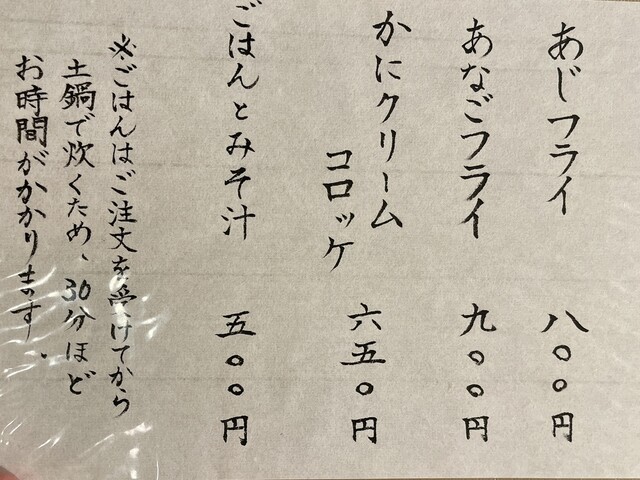 あじフライ 八〇〇円
あなごフライ 九〇〇円
かにクリーム
コロッケ 六五〇円
ごはんとみそ汁 五〇〇円
※ごはんはご注文を受けてから
土鍋で炊くため、30分ほど
お時間がかかります。